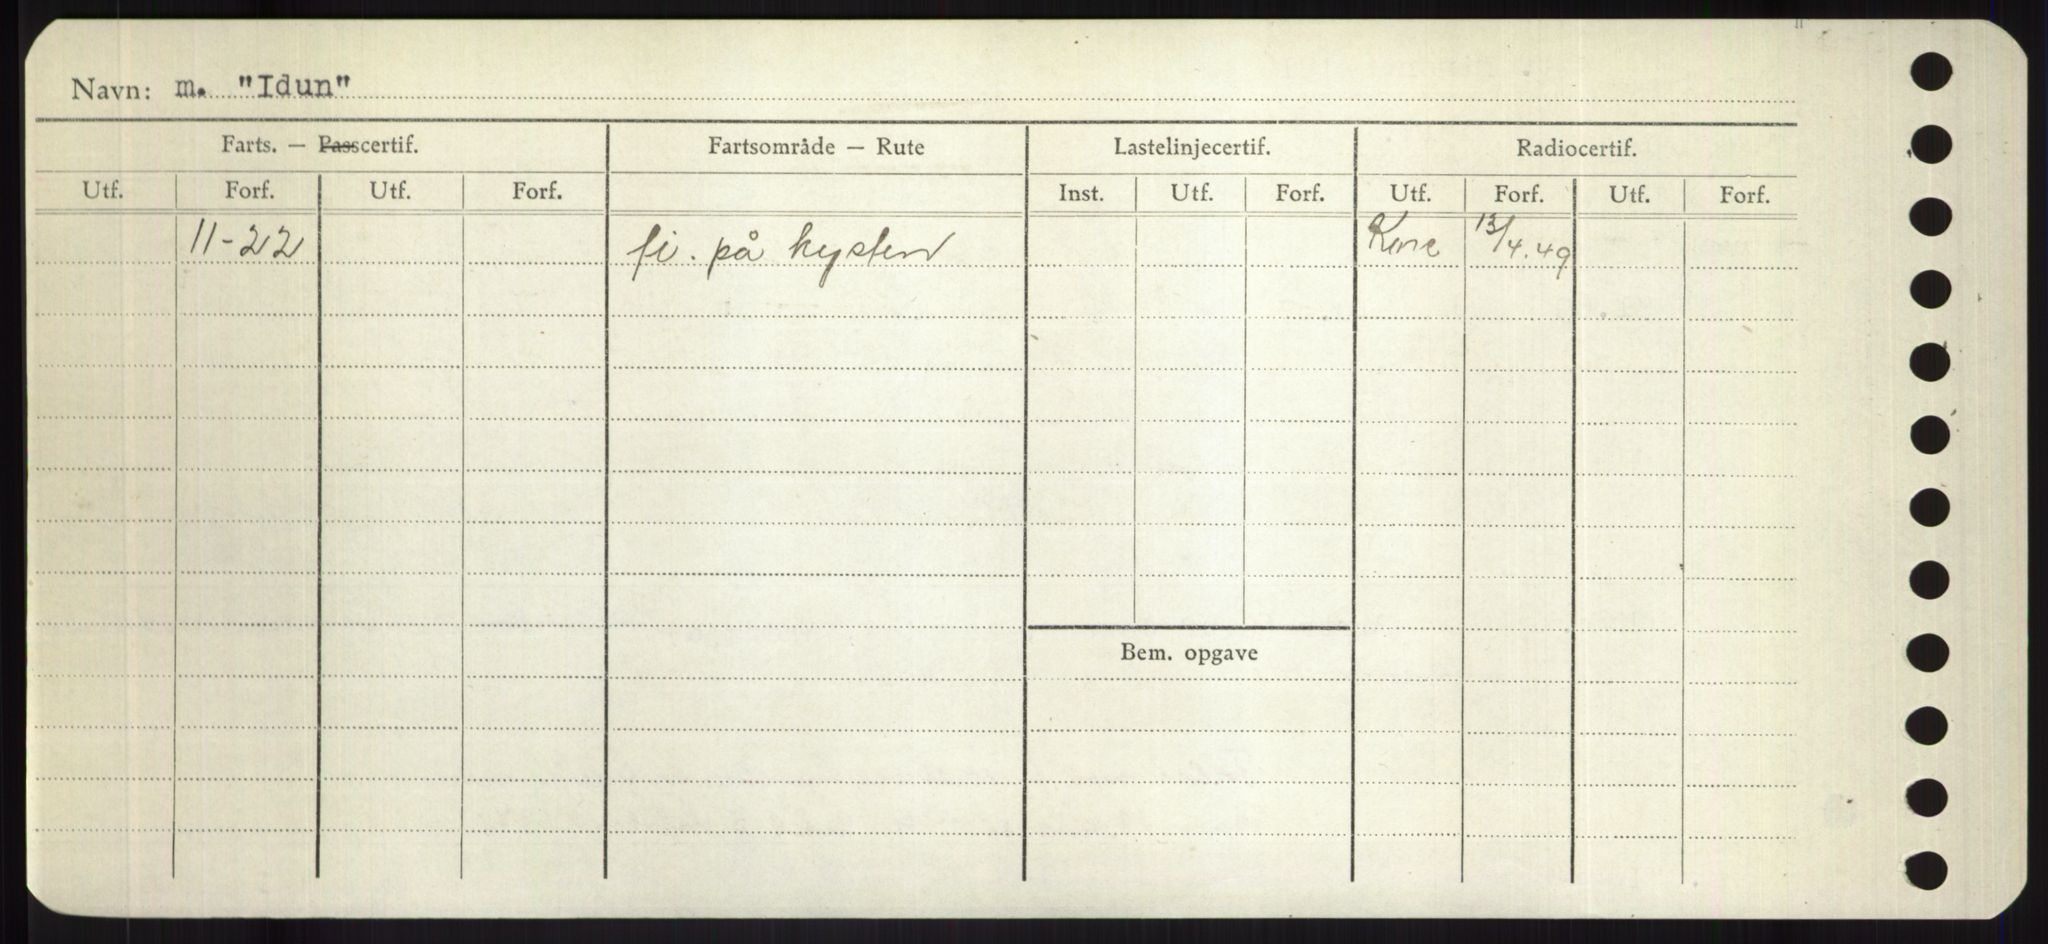 Navn: m. "Idun"
Farts. — Passcertif. Fartsområde — Rute Lastelinjecertif. Radiocertif.
Utf. Forf. Utf. Forf. Inst. Utf. Forf. Utf. Forf. Utf. Forf.
11-22 fi. på kysten 13/4.49
Bem. opgave